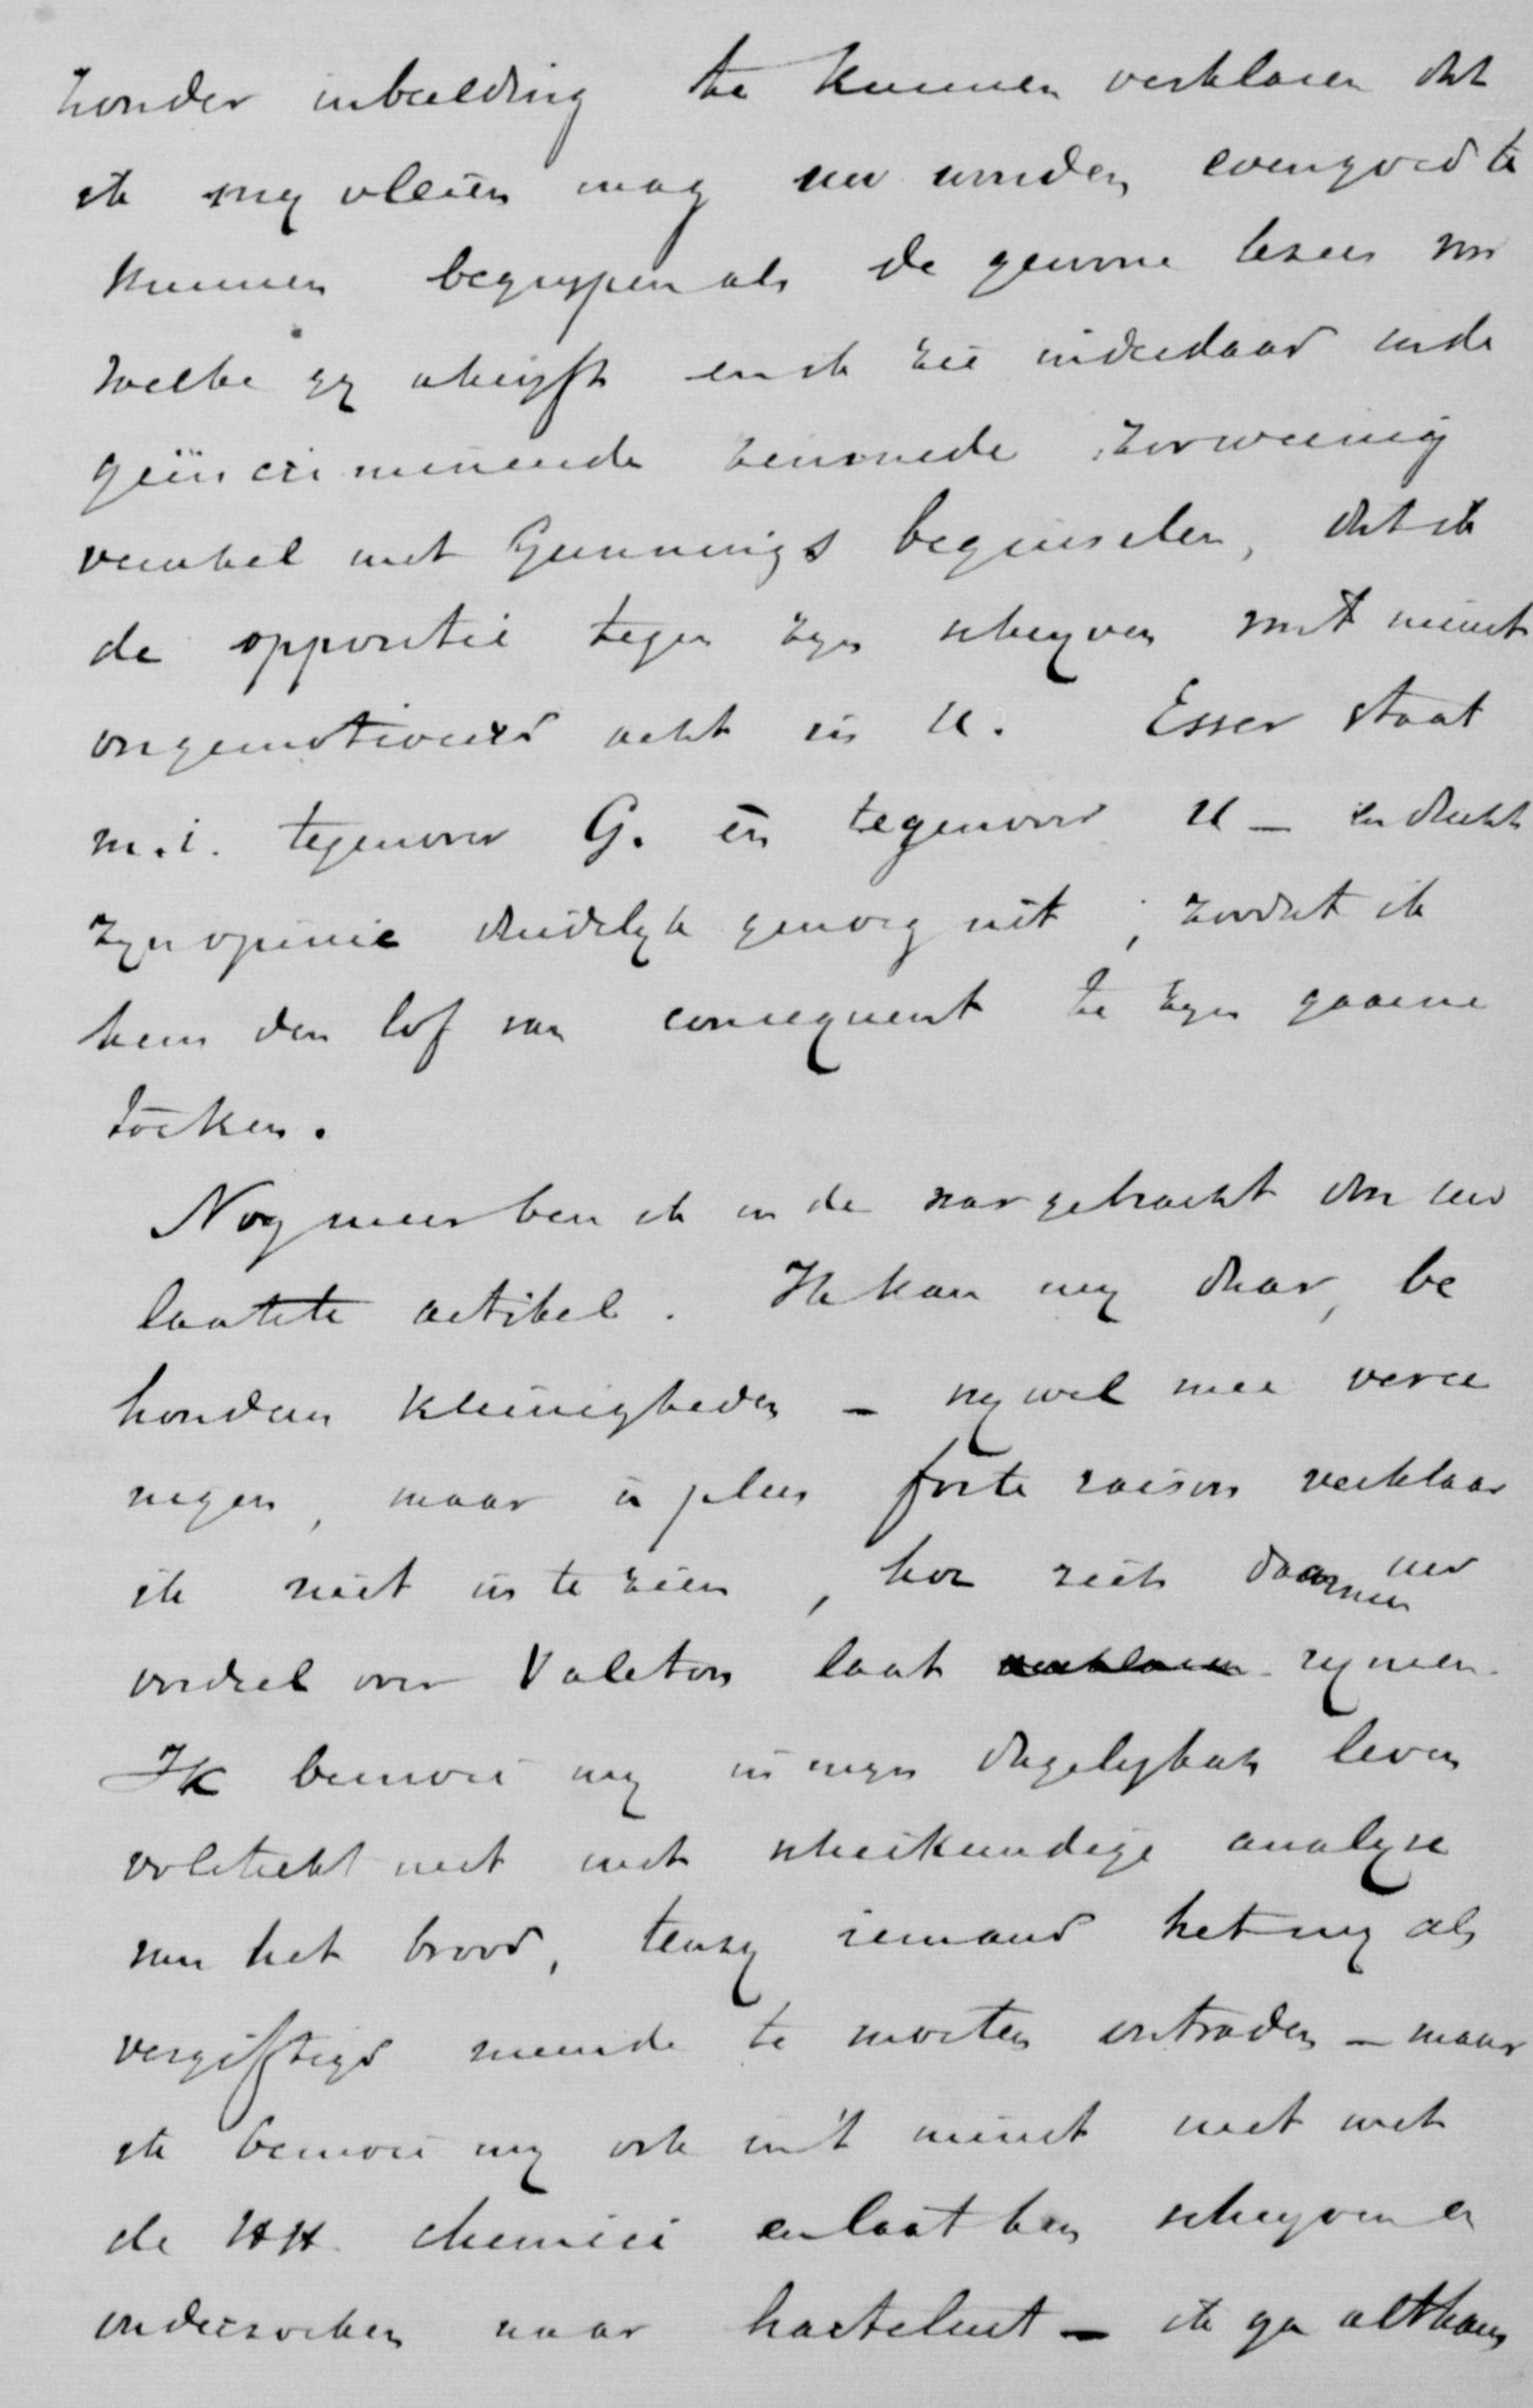 zonder inbeelding te kunnen verklaren dat
ik mij vleien mag uw woorden evengoed te
kunnen begrijpen als de gewone lezers voor
welke gij schrijft en ik zie inderdaad in de
geïncrimineerde zinsnede zoo weinig
verschil met Gunnings beginselen, dat ik
de oppositie tegen zijn schrijven in 't minst
ongemotiveerd acht in U. Esser staat
m.i. tegenover G. en tegenover U – en drukt
zijn opinie duidelijk genoeg uit; zoodat ik
hem den lof van consequent te zijn gaarne
toeken.
Nog meer ben ik in de war gebracht door uw
laatste artikel. Ik kan mij daar, be
houdens kleinigheden – nij wel mee veree
nigen, maar à plus forte raison verklaar
ik niet in te zien, hoe zich daarmee uw
oordeel over Valeton laat rijmen.
Ik bemoei mij in mijn dagelijksch leven
volstrekt niet met scheikundige analyse
van het brood, tenzij iemand het mij als
vergiftigd meende te moeten ontraden – maar
ik bemoei mij ook in 't minst niet met
de HH. chemici en laat hen schrijven en
onderzoeken naar hartelust – ik ga althans